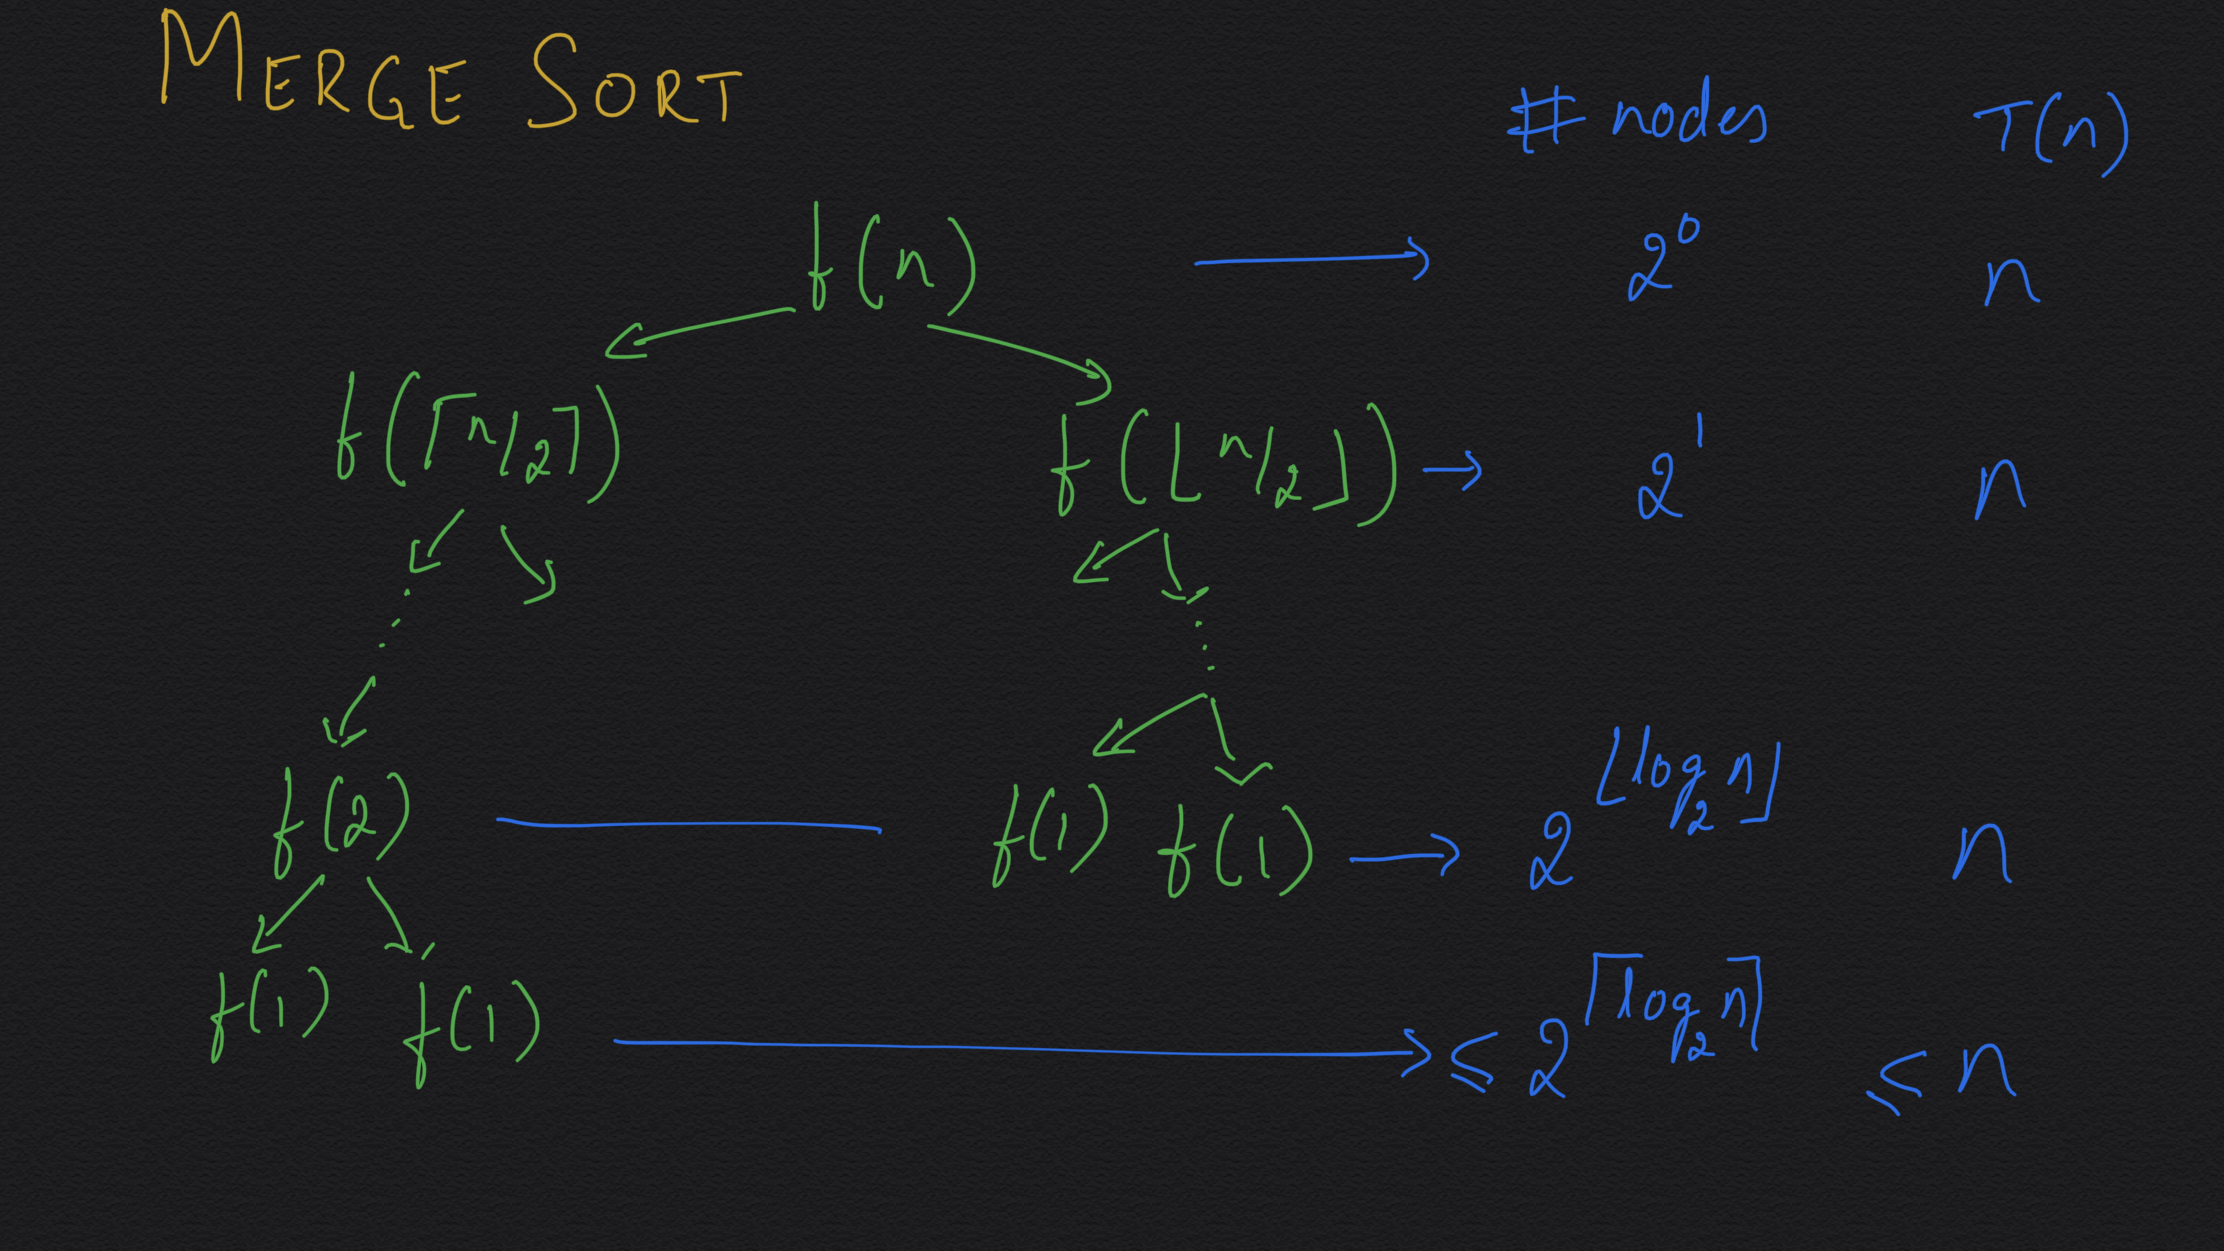 MERGE SORT
# nodes T(n)
f(n) → 2⁰ n
f(⌈n/2⌉) f(⌊n/2⌋) → 2¹ n
f(2) f(1) f(1) → 2^⌊log₂n⌋ n
f(1) f(1) → ≤ 2^⌈log₂n⌉ ≤ n